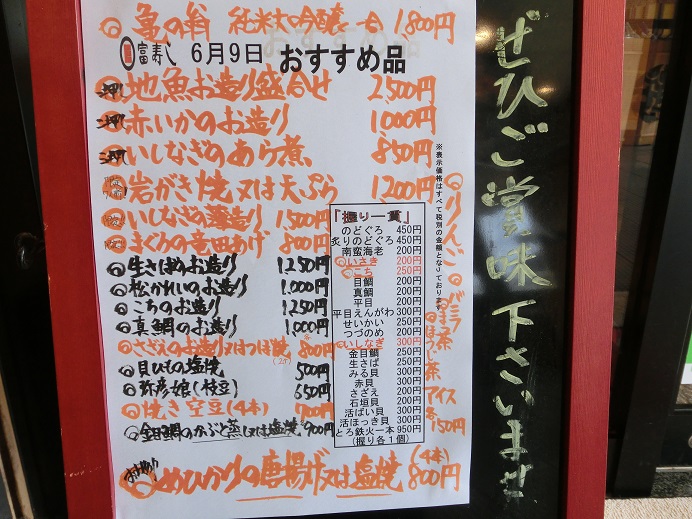 亀の翁 純米大吟醸 一合 1,800円
富寿し 6月9日 おすすめ品
地魚お造り盛合せ 2,500円
赤いかのお造り 1,000円
いしなぎのあら煮 850円
岩がき焼又は天ぷら 1,200円
いしなぎの薄造り 1,500円
まぐろの竜田あげ 800円
生さばのお造り 1,250円
松かれいのお造り 1,000円
こちのお造り 1,250円
真鯛のお造り 1,000円
さざえのお造り又はつぼ焼 800円
貝ひもの塩焼 500円
弥彦娘(枝豆) 650円
焼き空豆(4本) 700円
金目鯛のかぶと蒸し又は塩焼 900円
おすすめ めひかりの唐揚げ又は塩焼 (4本) 800円
「握り一貫」
のどぐろ 450円
炙りのどぐろ 450円
南蛮海老 200円
いさき 200円
こち 250円
目鯛 200円
真鯛 200円
平目 200円
平目えんがわ 300円
せいかい 250円
つづのめ 200円
いしなぎ 300円
金目鯛 250円
生さば 250円
みる貝 300円
赤貝 300円
さざえ 200円
石垣貝 200円
活ばい貝 300円
活ほっき貝 300円
とろ鉄火一本 950円
(握り各1個)
※表示価格はすべて税別の金額となっております
りんご
バニラ
ほうじ茶
アイス
各150円
ぜひご賞味下さいませ